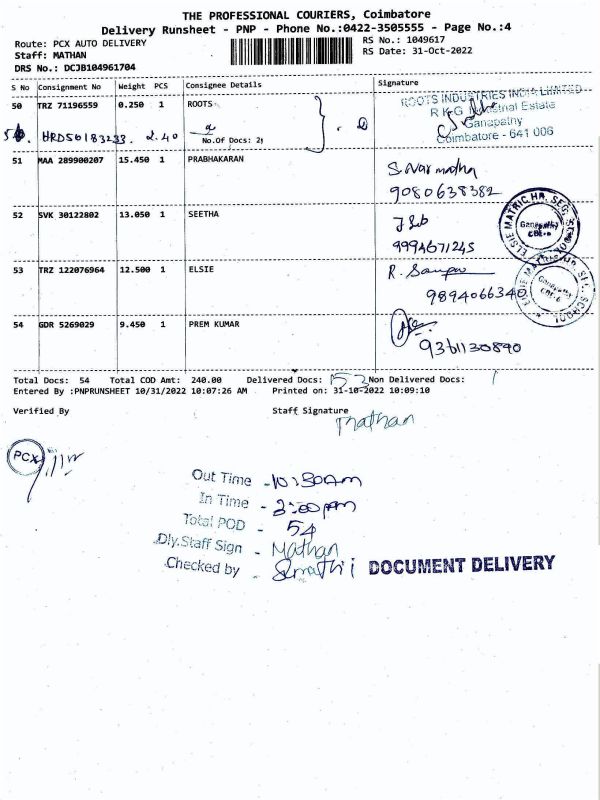 THE PROFESSIONAL COURIERS, Coimbatore
Delivery Runsheet - PNP - Phone No.:0422-3505555 - Page No.:4
Route: PCX AUTO DELIVERY
RS No.: 1049617
Staff: MATHAN
RS Date: 31-Oct-2022
DRS No.: DCJB104961704
S No Consignment No Weight PCS Consignee Details Signature
50 TRZ 71196559 0.250 1 ROOTS
ROOTS INDUSTRIES INDIA LIMITED
R K G Industrial Estate
Ganapathy
Coimbatore - 641 006
HRD50183233. 2.40
No.Of Docs: 2
51 MAA 289900207 15.450 1 PRABHAKARAN
9080638382
52 SVK 30122802 13.050 1 SEETHA
9994671245
ELSIE MATRIC.HR. SEC. SCHOOL
Ganapathy
CBE-6
53 TRZ 122076964 12.500 1 ELSIE
9894066340
ELSIE MATRIC.HR. SEC. SCHOOL
Ganapathy
CBE-6
54 GDR 5269029 9.450 1 PREM KUMAR
9361130890
Total Docs: 54 Total COD Amt: 240.00 Delivered Docs: 53 Non Delivered Docs: 1
Entered By :PNPRUNSHEET 10/31/2022 10:07:26 AM Printed on: 31-10-2022 10:09:10
Verified By
Staff Signature
Mathan
PCX
Out Time - 10:30am
In Time - 3:00pm
Total POD - 54
Dly.Staff Sign - Mathan
Checked by -
DOCUMENT DELIVERY